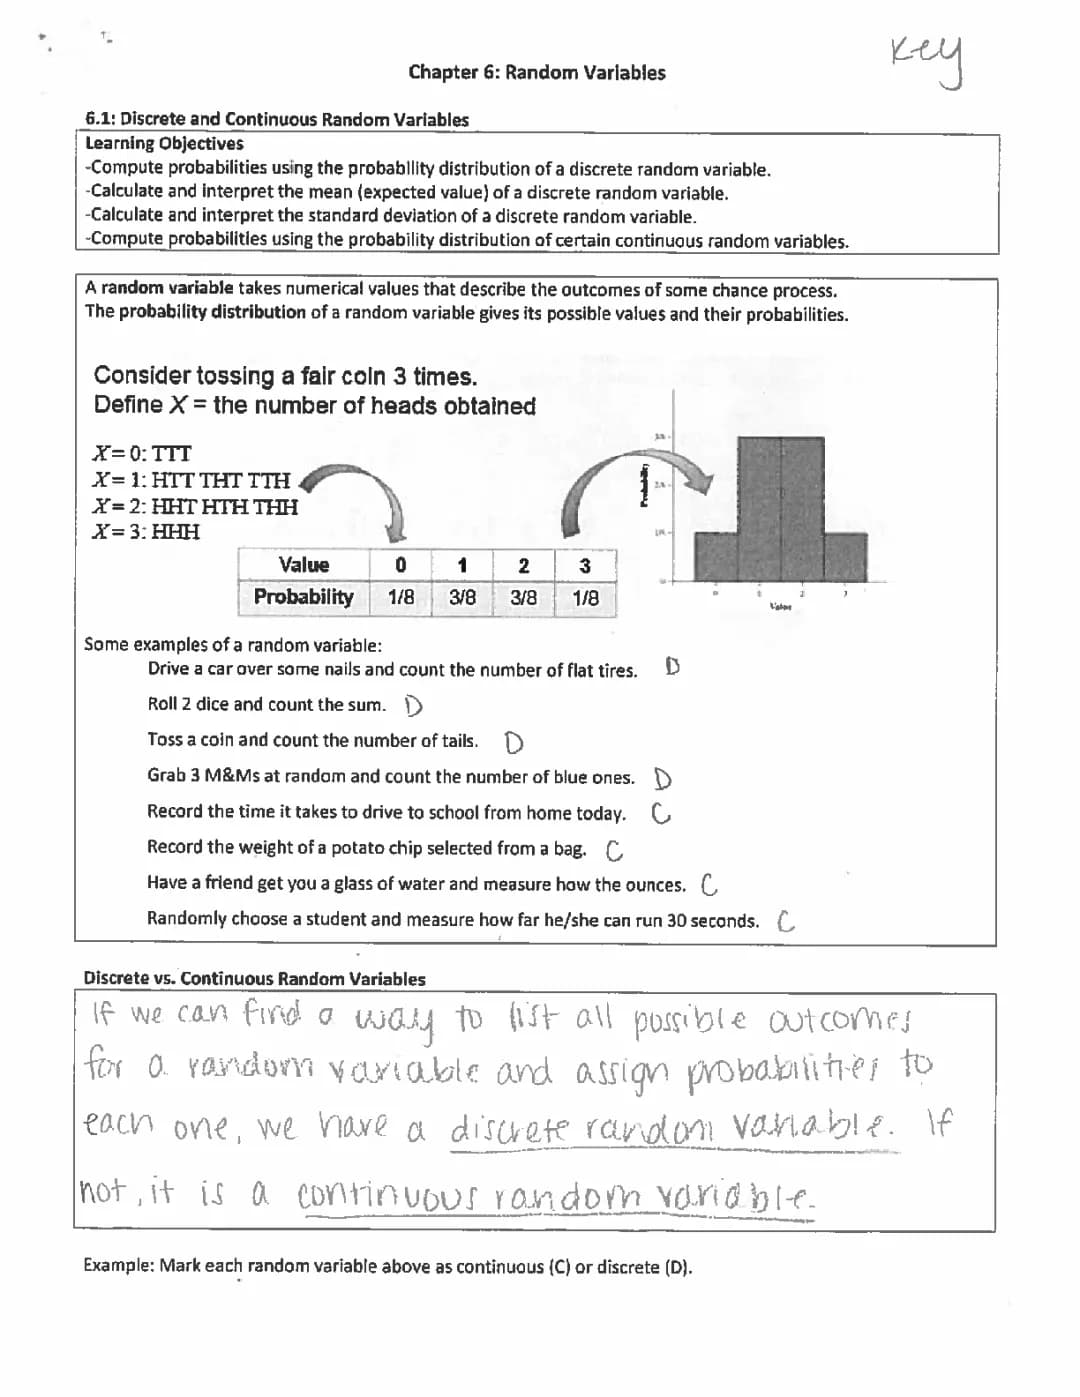 Key
Chapter 6: Random Variables
6.1: Discrete and Continuous Random Variables
Learning Objectives
-Compute probabilities using the probability distribution of a discrete random variable.
-Calculate and interpret the mean (expected value) of a discrete random variable.
-Calculate and interpret the standard deviation of a discrete random variable.
-Compute probabilities using the probability distribution of certain continuous random variables.
A random variable takes numerical values that describe the outcomes of some chance process.
The probability distribution of a random variable gives its possible values and their probabilities.
Consider tossing a fair coin 3 times.
Define X = the number of heads obtained
X = 0: TTT
X = 1: HTT THT TTH
X = 2: HHT HTH THH
X = 3: HHH
Probability
Value
Value 0 1 2 3
Probability 1/8 3/8 3/8 1/8
Some examples of a random variable:
Drive a car over some nails and count the number of flat tires. D
Roll 2 dice and count the sum. D
Toss a coin and count the number of tails. D
Grab 3 M&Ms at random and count the number of blue ones. D
Record the time it takes to drive to school from home today. C
Record the weight of a potato chip selected from a bag. C
Have a friend get you a glass of water and measure how the ounces. C
Randomly choose a student and measure how far he/she can run 30 seconds. C
Discrete vs. Continuous Random Variables
If we can find a way to list all possible outcomes
for a random variable and assign probabilities to
each one, we have a discrete random variable. If
not, it is a continuous random variable.
Example: Mark each random variable above as continuous (C) or discrete (D).